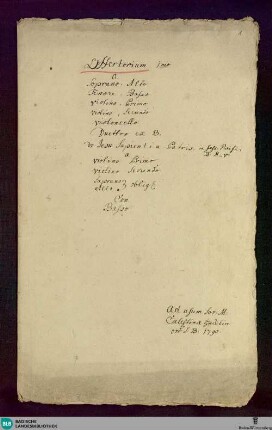 Offertorium
a
Soprano Alto
Tenore Basso
violino Primo
violino Secundo
violoncello
Duetto ex B.
Jesu Sapientia Patris
a
violino Primo
violino Secundo
Soprano
Alto obligt
Con
Basso
Ad usum Sor. M.
1790
BLB BADISCHE
LANDESBIBLIOTHEK